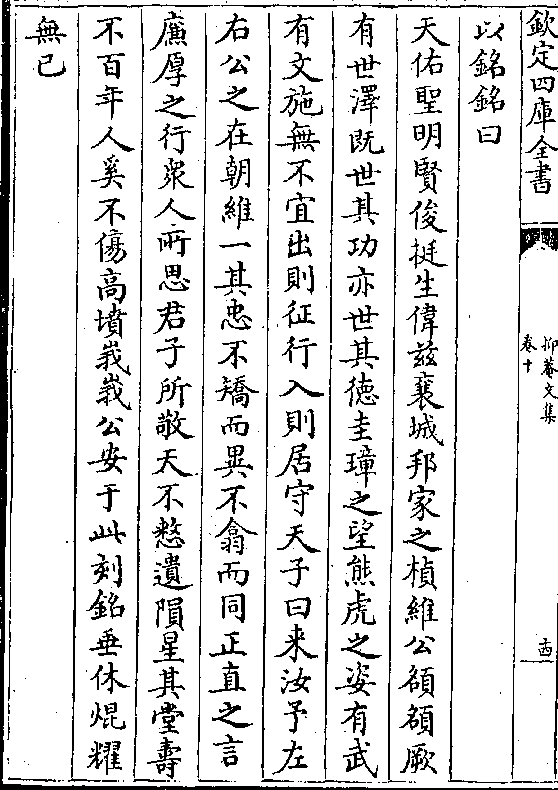 欽定四庫全書
抑菴文集
卷十
十四
以銘銘曰
天佑聖明賢俊挺生偉兹襄城邦家之楨維公頟頟厥
有世澤既世其功亦世其德圭璋之望熊虎之姿有武
有文施無不宜出則征行入則居守天子曰来汝予左
右公之在朝維一其忠不矯而異不翕而同正直之言
廉厚之行衆人所思君子所敬天不憗遺隕星其堂壽
不百年人奚不傷高墳峩峩公安于此刻銘垂休焜耀
無已